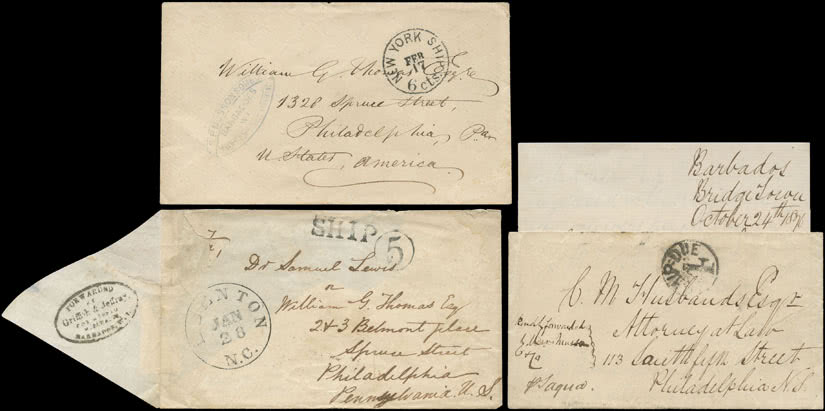 NEW YORK SHIP
FEB
17
6 cts
William G. Thomas Esqre
1328 Spruce Street,
Philadelphia, Pa
U States, America.
Barbados
Bridge Town
October 24th
SHIP 5
Dr Samuel Lewis
or
William G. Thomas Esq
243 Belmont place
Spruce Street
Philadelphia
Pennsylvania. U. S.
EDENTON
JAN
28
N.C.
FORWARDED
BY
Griffith &
BARBADOS, W.I.
DUE
C. M. Husbands Esqr
Attorney at Law
113 South fifth Street
Philadelphia